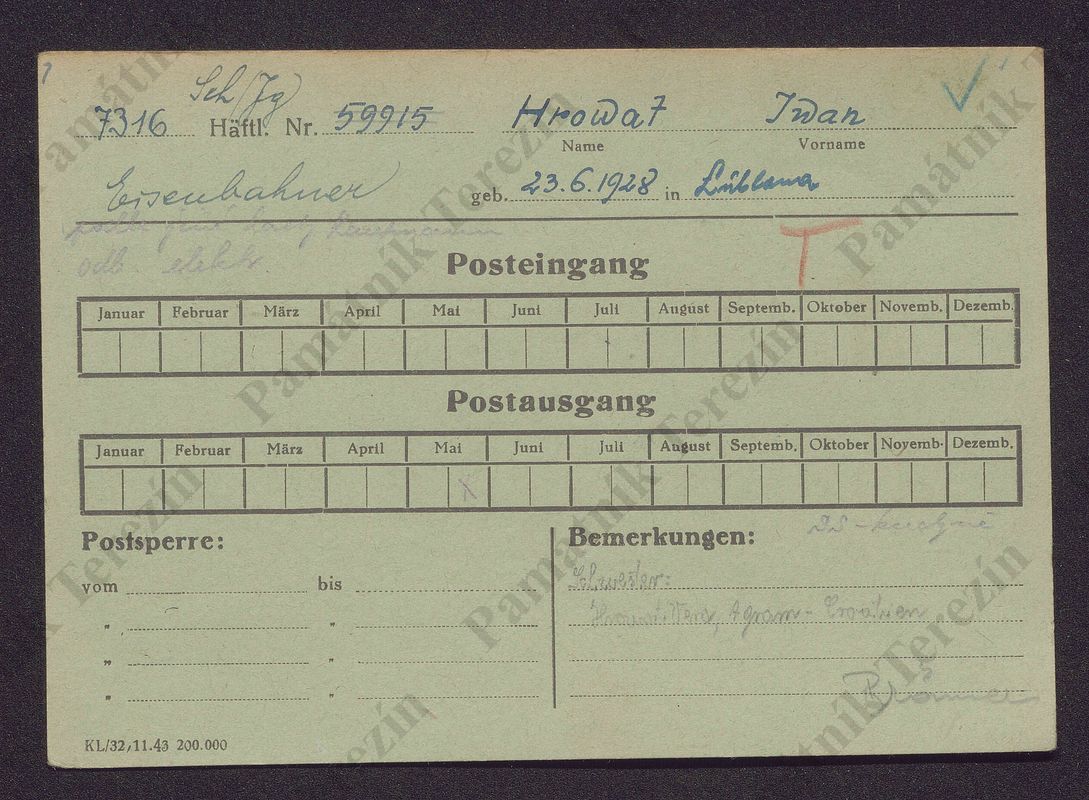 Sch/Jg
7316 Häftl. Nr. 59915 Hrowat Iwan
Name Vorname
Eisenbahner geb. 23.6.1928 in Lüblana
T
odb. elektr
Posteingang
Januar Februar März April Mai Juni Juli August Septemb. Oktober Novemb. Dezemb.
Postausgang
Januar Februar März April Mai Juni Juli August Septemb. Oktober Novemb. Dezemb.
X
SS-kuchyně
Postsperre: Bemerkungen:
vom bis
Schwester:
Agram - Croatien
" "
" "
" "
KL/32, 11.43 200.000
Památník Terezín